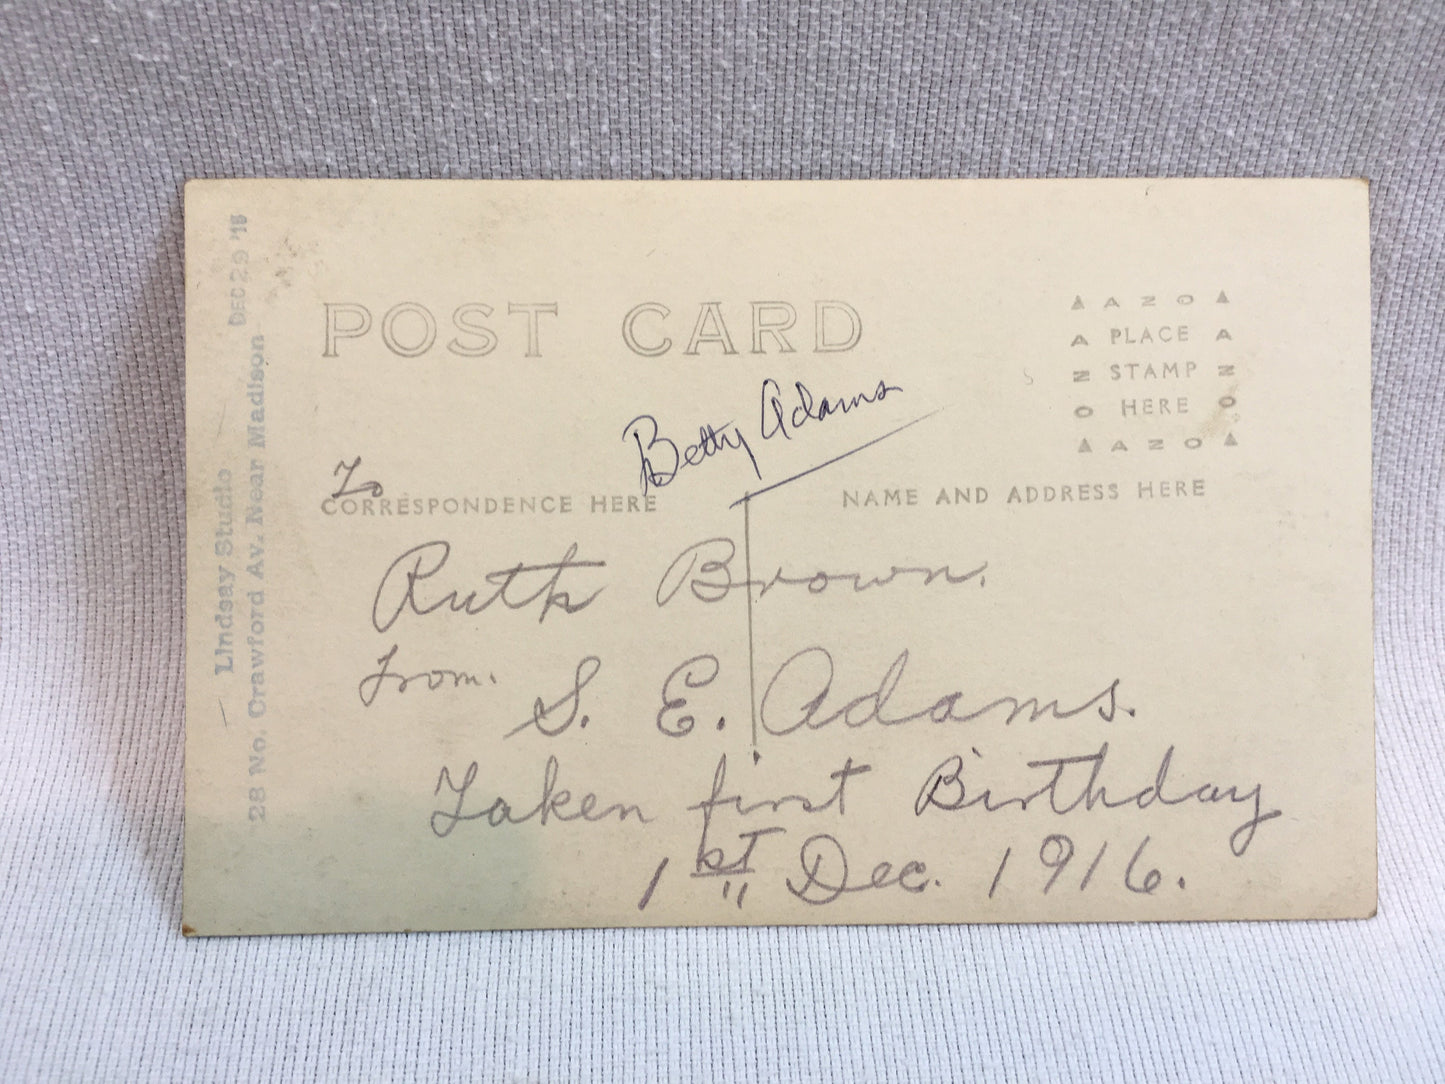 Lindsay Studio
28 No. Crawford Av. Near Madison DEC 29 '15
POST CARD
AZO
A PLACE A
Z STAMP Z
O HERE O
AZO
Betty Adams
To
CORRESPONDENCE HERE
NAME AND ADDRESS HERE
Ruth Brown.
From.
S. E. Adams.
Taken first Birthday
1st Dec. 1916.